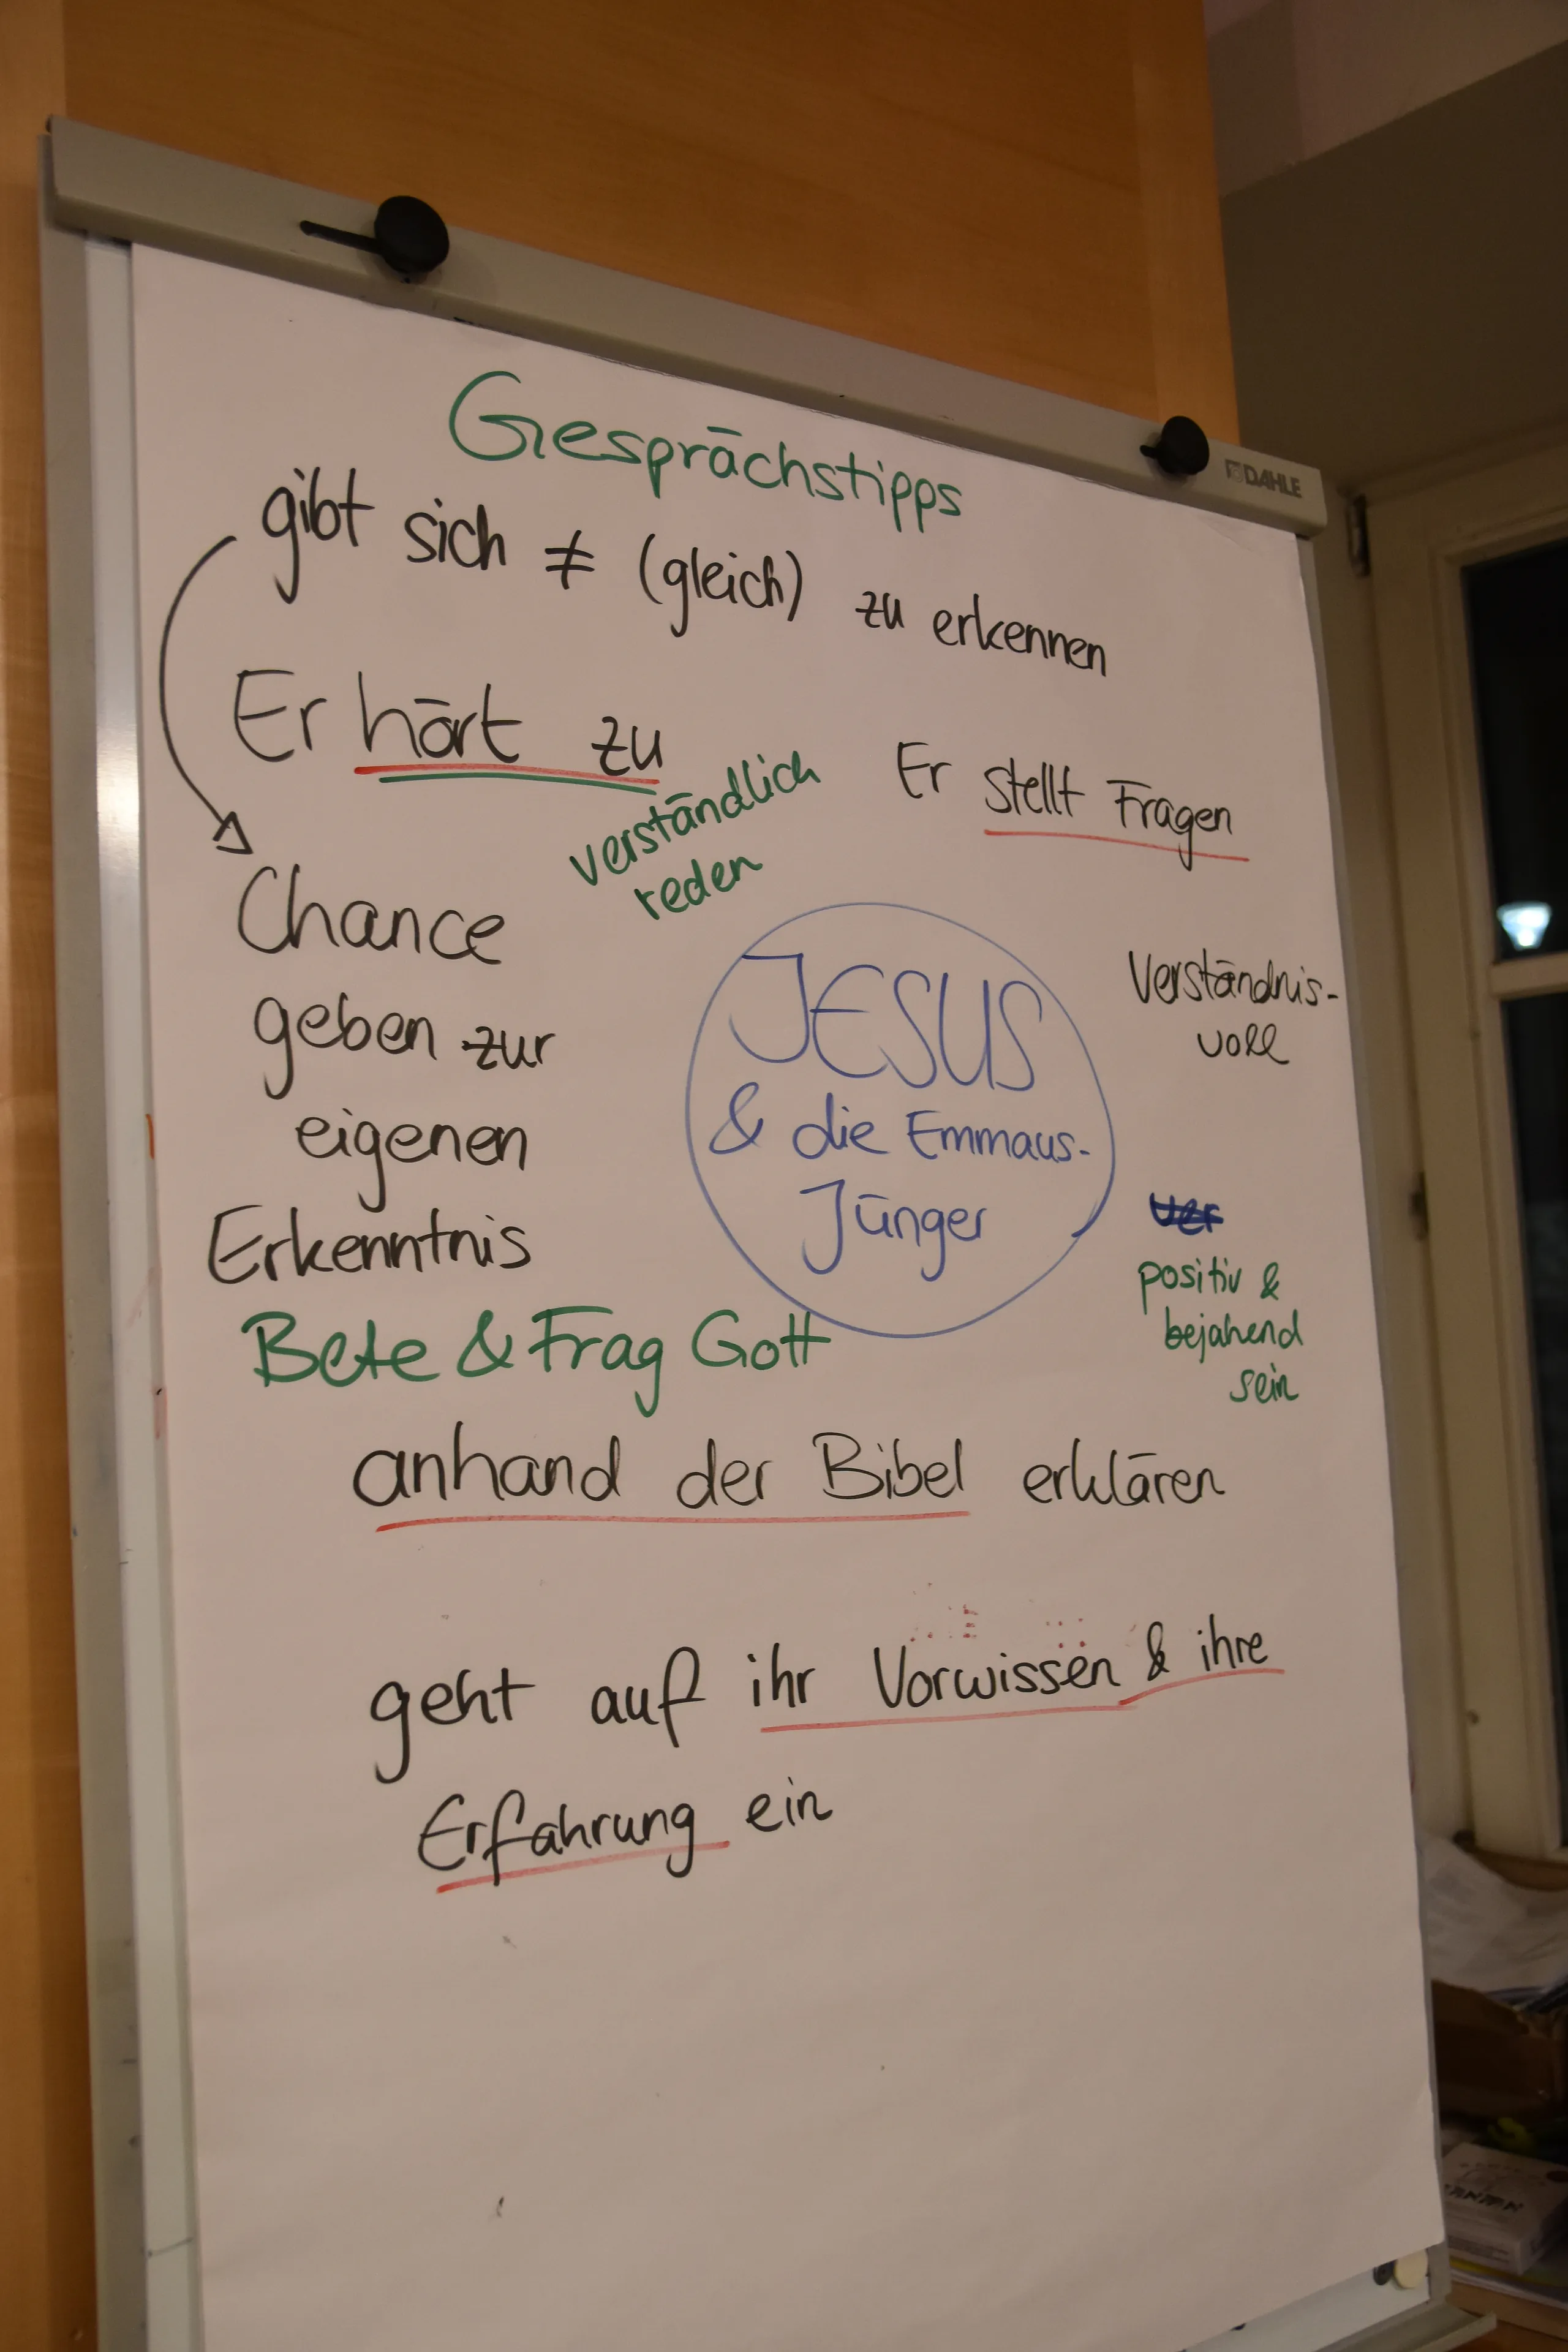 DAHLE
Gesprächstipps
gibt sich ≠ (gleich) zu erkennen
Er hört zu
verständlich
reden
Er stellt Fragen
Chance
geben zur
eigenen
Erkenntnis
JESUS
& die Emmaus-
Jünger
Verständnis-
voll
ver
positiv &
bejahend
sein
Bete & Frag Gott
anhand der Bibel erklären
geht auf ihr Vorwissen & ihre
Erfahrung ein